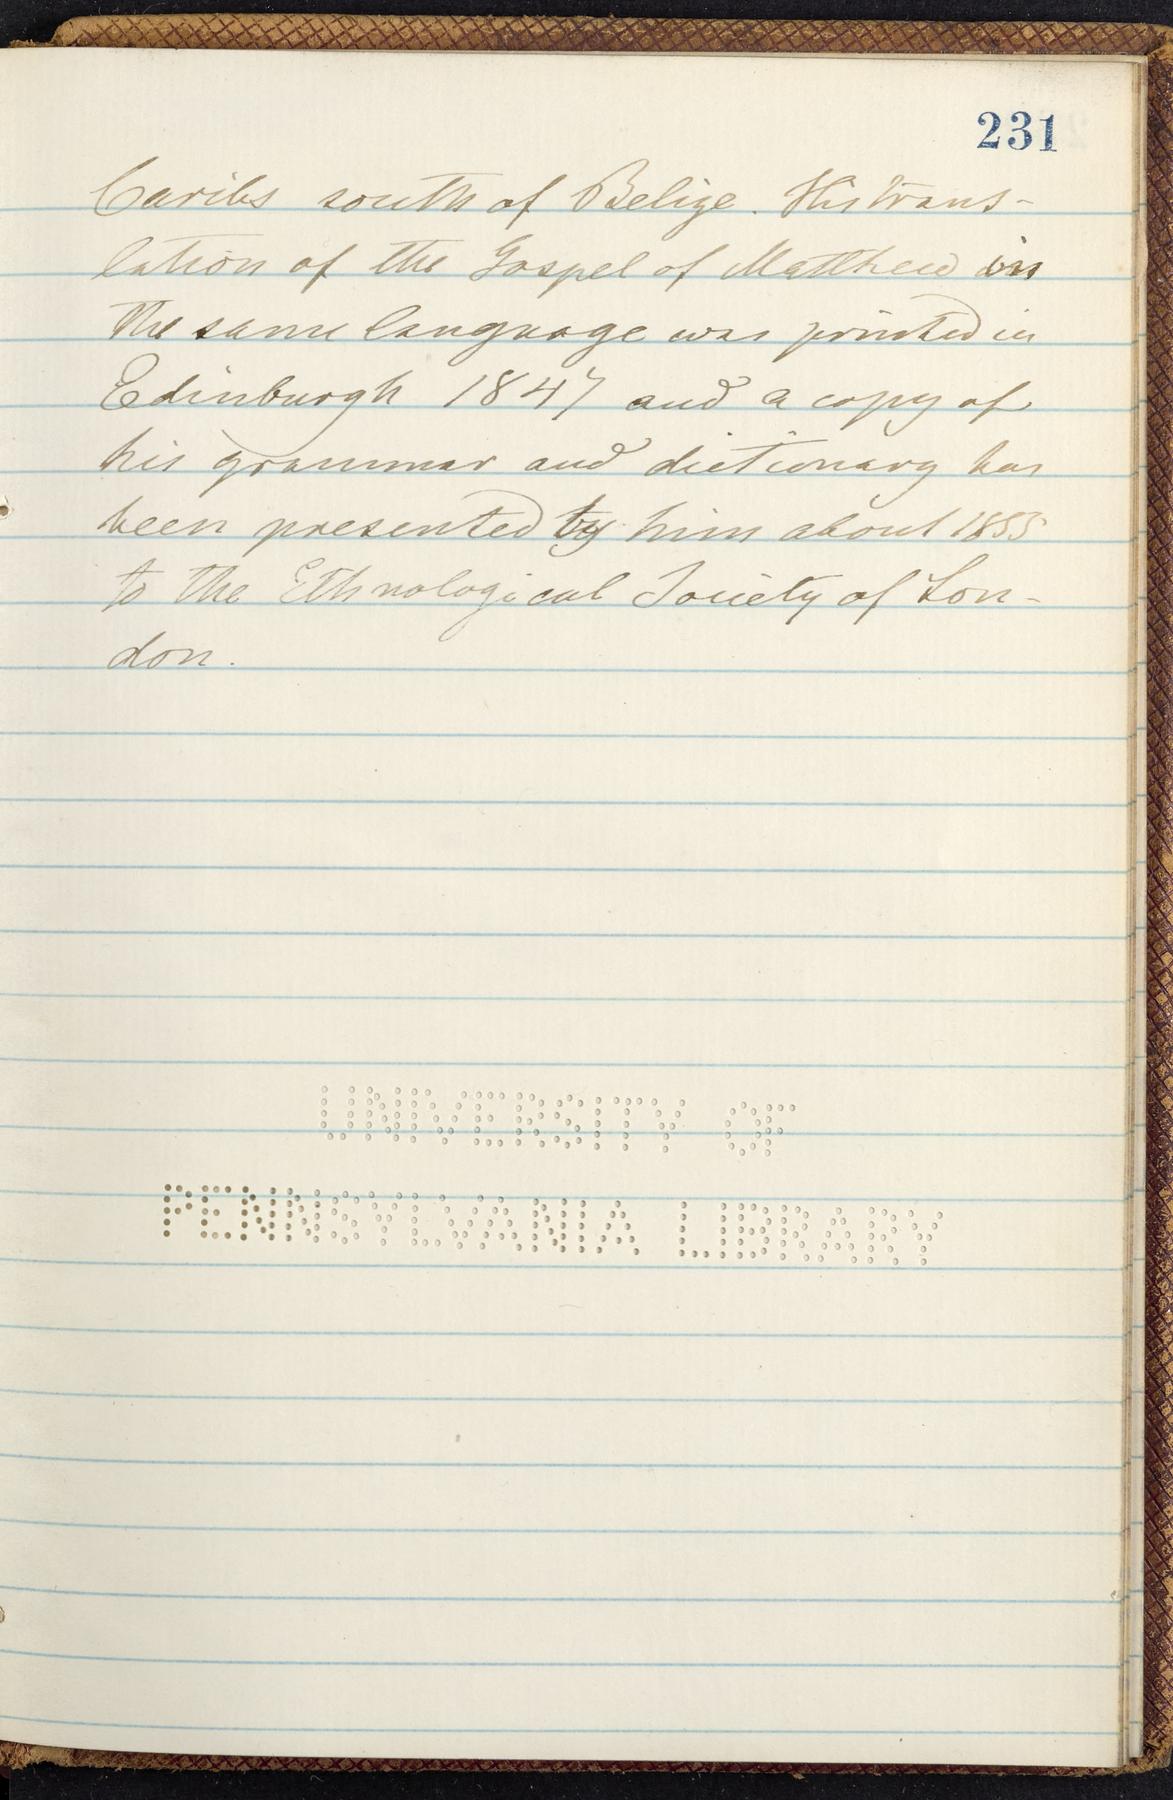 231
Caribs south of Belize. His trans-
lation of the Gospel of Matthew in
the same language was printed in
Edinburgh 1847 and a copy of
his grammar and dictionary has
been presented by him about 1855
to the Ethnological Society of Lon-
don.
UNIVERSITY OF
PENNSYLVANIA LIBRARY